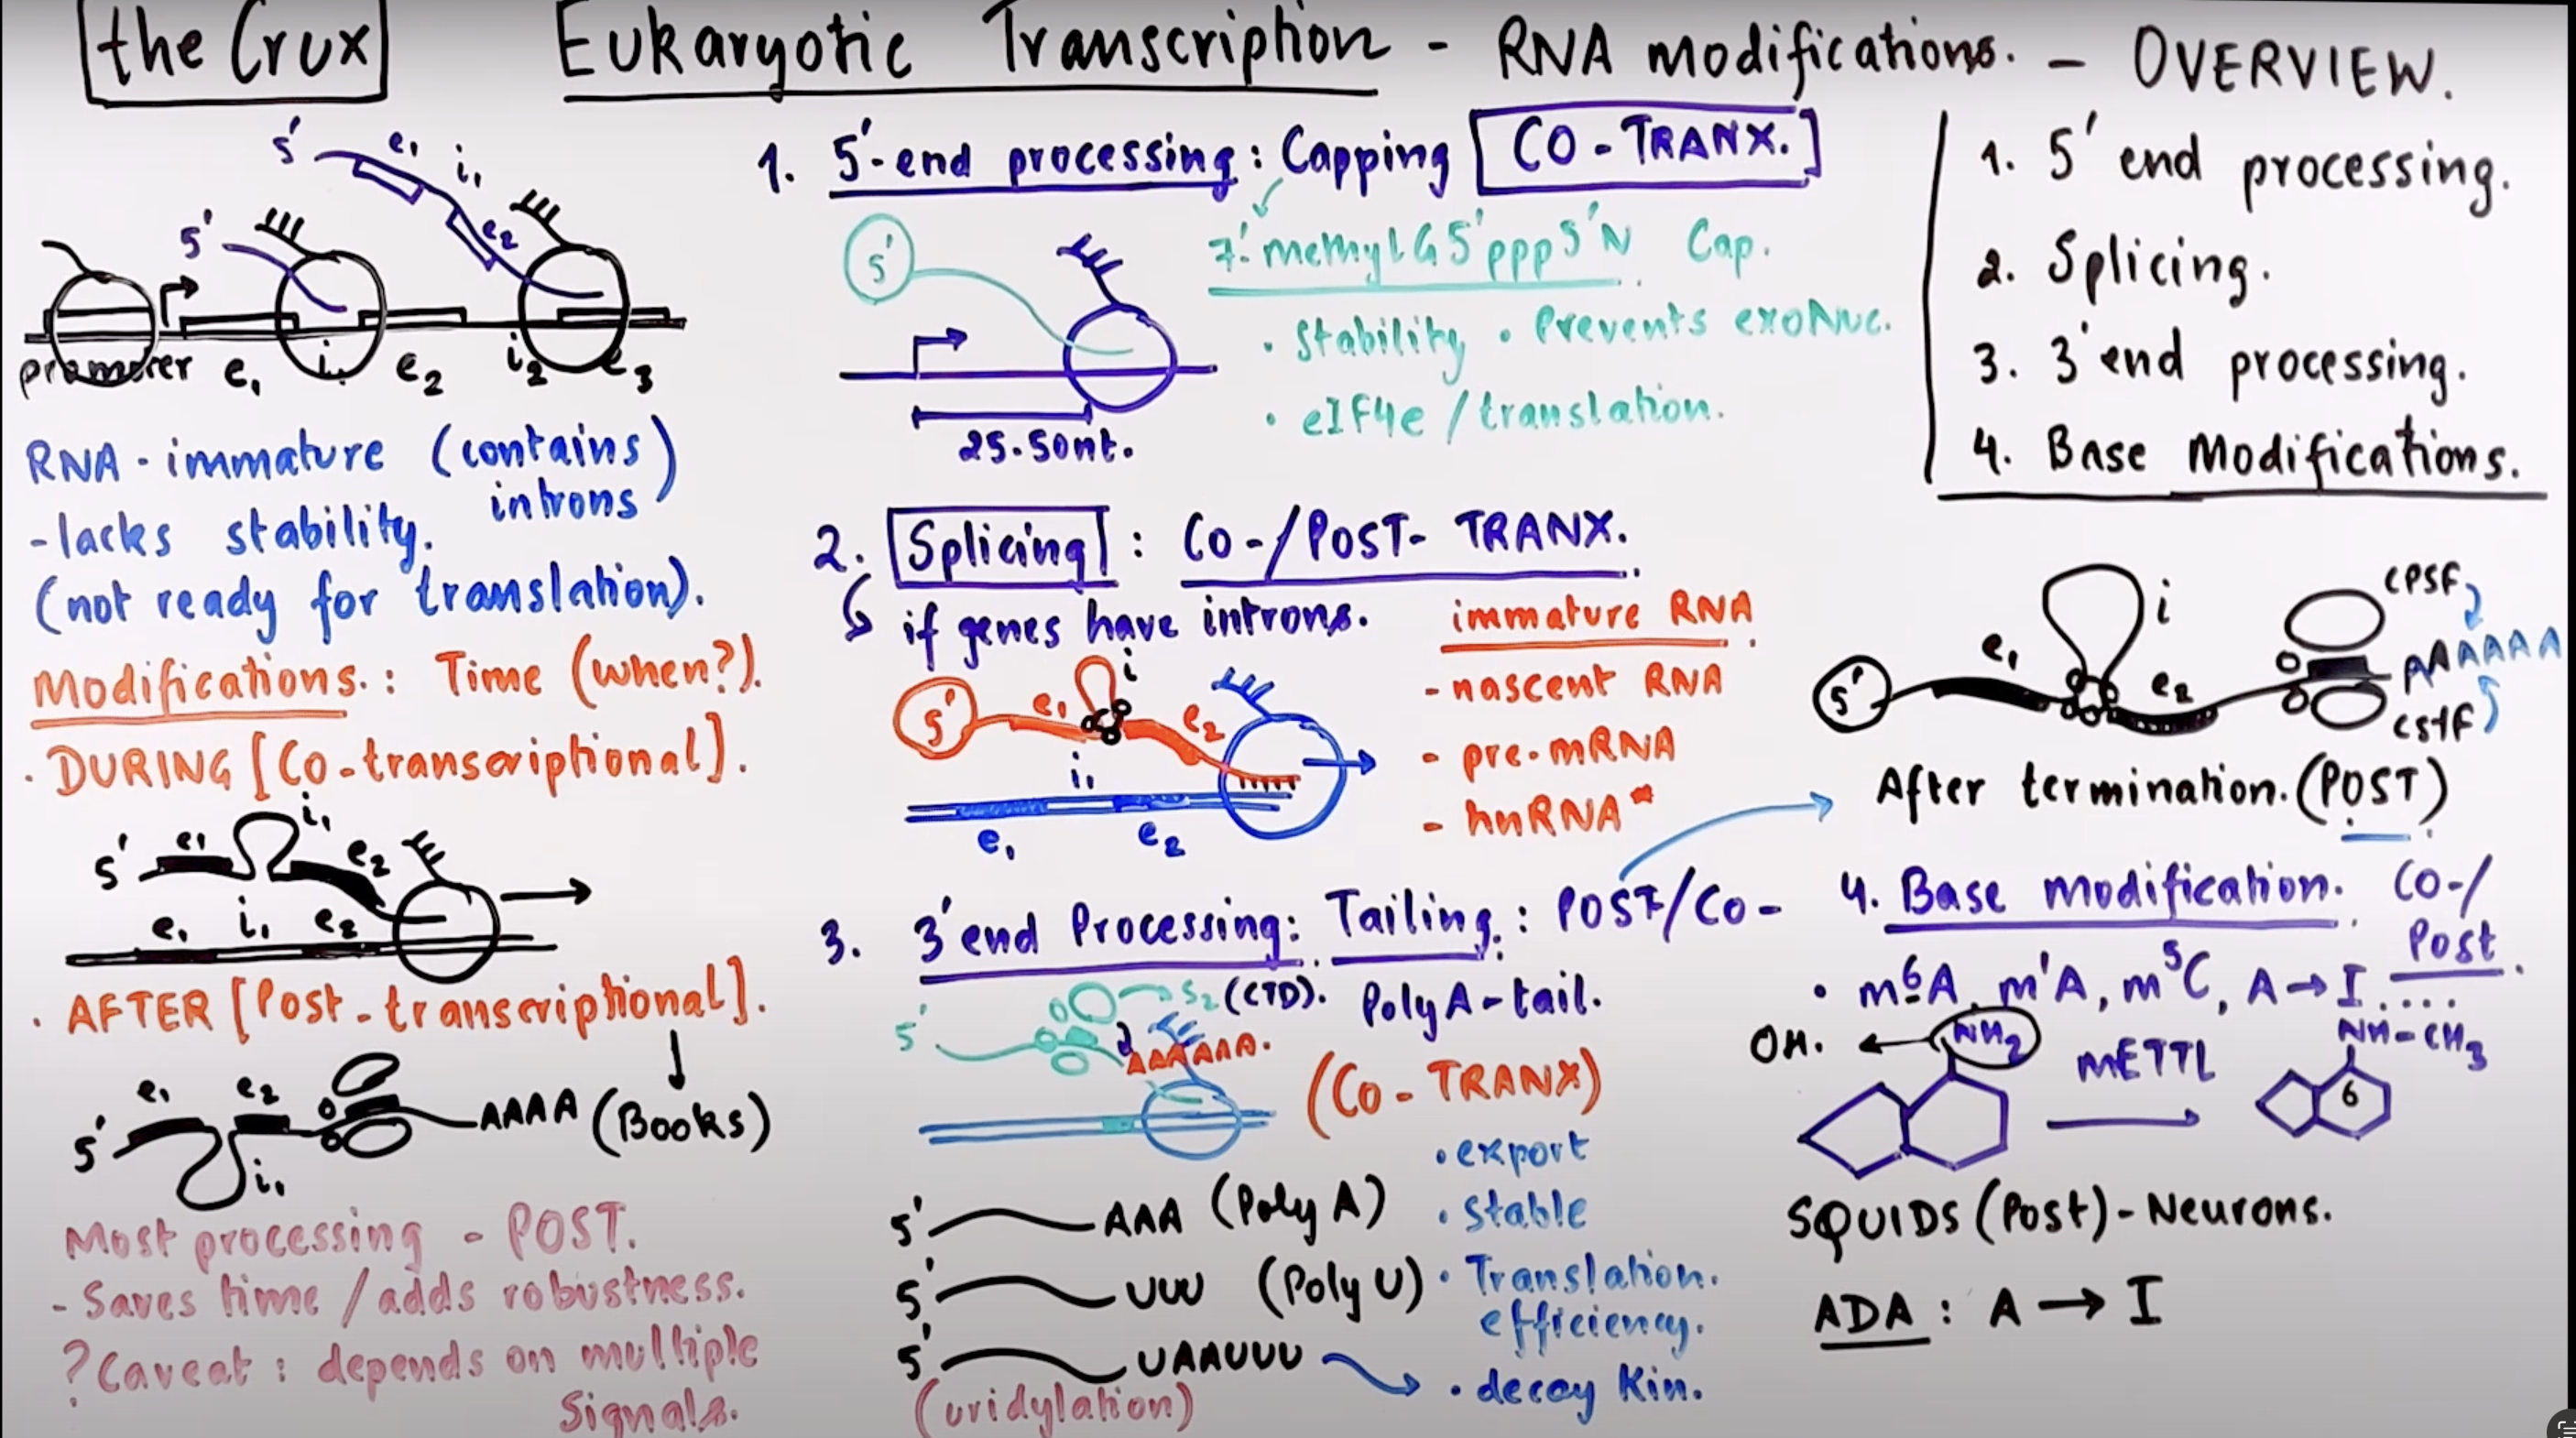 the Crux
Eukaryotic Transcription - RNA modifications. - OVERVIEW.
5' e1 i1
5' e2
promoter e1 i1 e2 i2 e3
RNA - immature (contains introns)
- lacks stability.
(not ready for translation).
Modifications.: Time (when?).
. DURING [Co-transcriptional].
5' e1 i1 e2
e1 i1 e2
. AFTER [Post-transcriptional].
5' e1 e2 AAAA (Books)
i1
Most processing - POST.
- Saves time / adds robustness.
? Caveat : depends on multiple
Signals.
1. 5'-end processing: Capping [CO-TRANX.]
5'
7'-methyl G 5'ppp5'N Cap.
. Stability . Prevents exoNuc.
. eIF4e / translation.
25-50nt.
2. Splicing : CO-/POST- TRANX.
if genes have introns.
immature RNA
- nascent RNA
- pre-mRNA
- hnRNA*
5' e1 i e2
i1
e1 e2
3. 3'end Processing: Tailing.: POST/Co-
5' S2 (CTD). PolyA-tail.
AAAAAA.
(Co-TRANX)
. export
. stable
. Translation.
efficiency.
. decay Kin.
5' AAA (Poly A)
5' UUU (Poly U)
5' UAAUUU
(uridylation)
1. 5' end processing.
2. Splicing.
3. 3'end processing.
4. Base Modifications.
5' e1 i e2 CPSF
AAAAAAA
CstF
After termination.(POST)
4. Base modification. CO-/
Post.
. m6A, m1A, m5C, A→I....
OH. NH2 METTL NH-CH3
6
SQUIDS (Post)-Neurons.
ADA : A → I